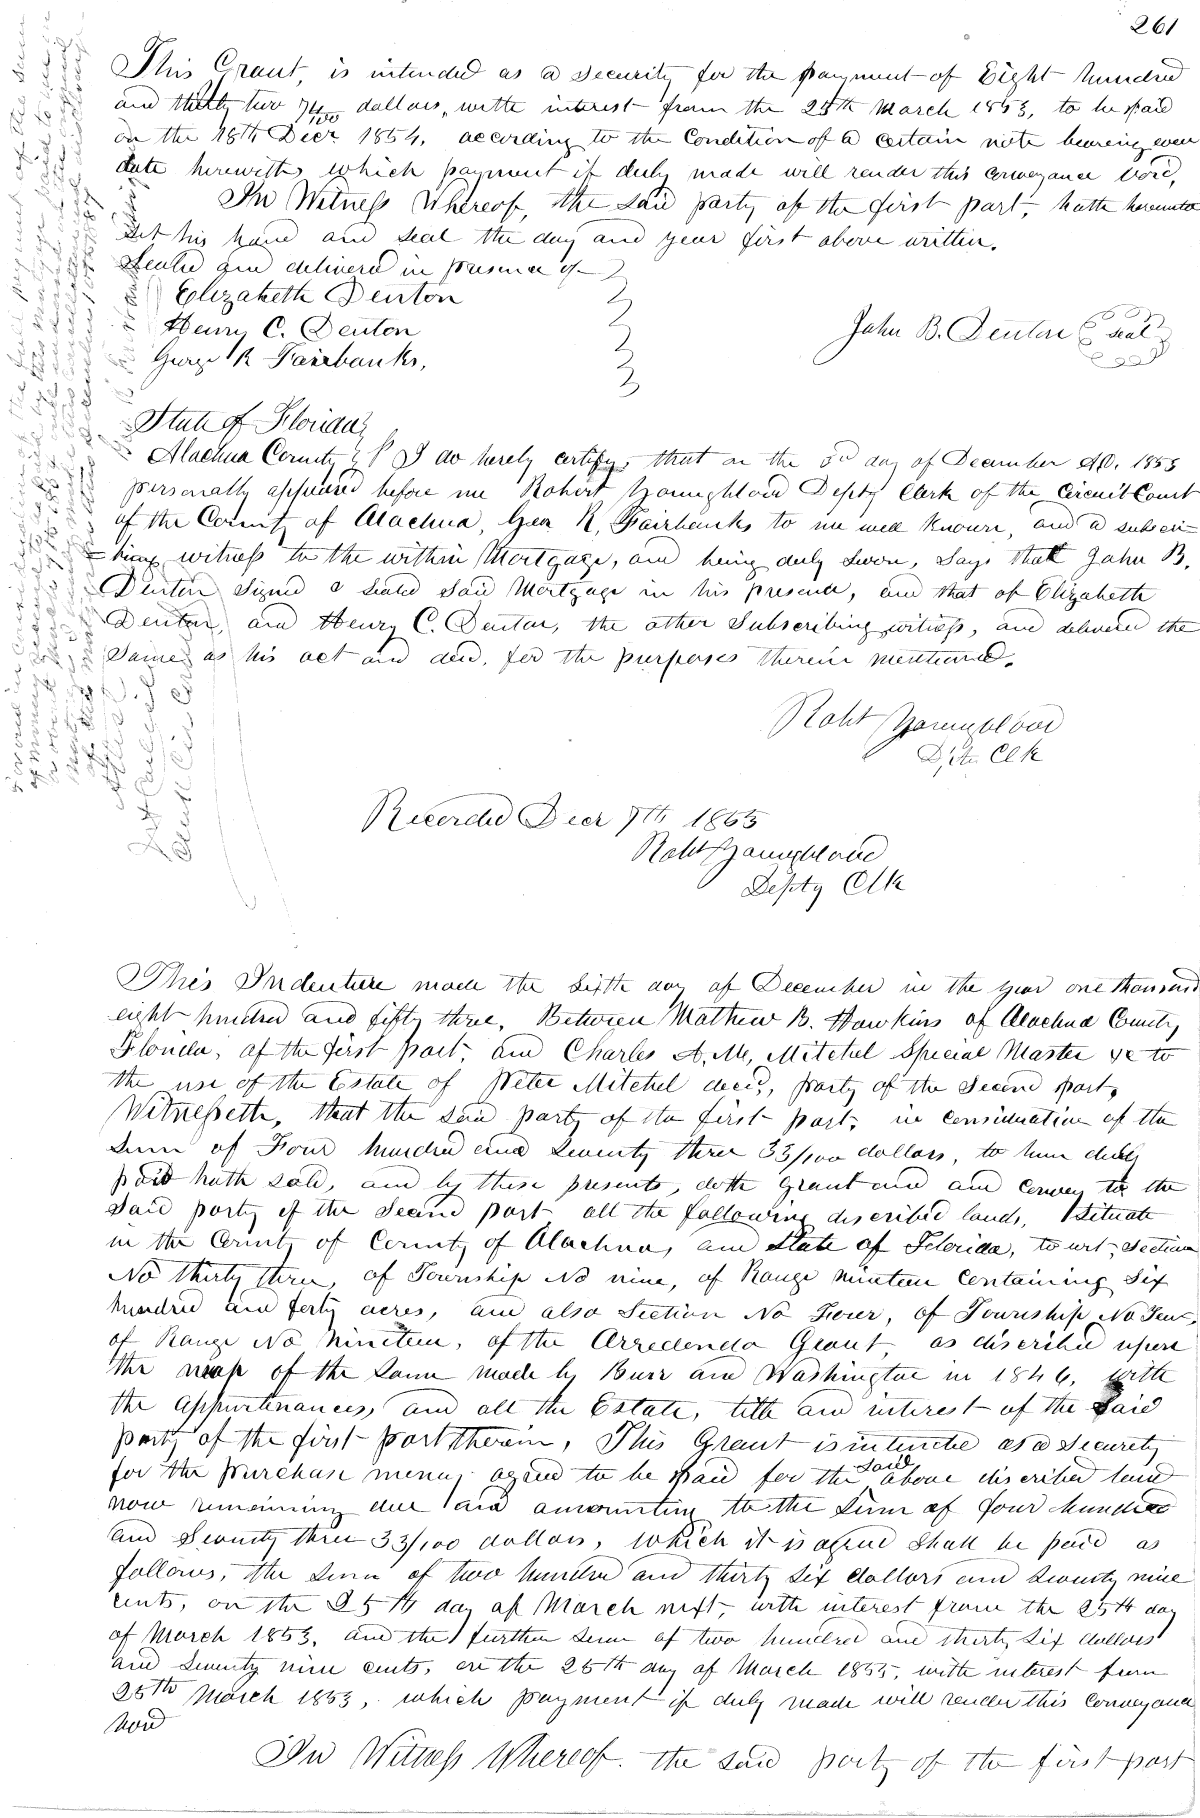 261
This Grant, is intended as a security for the payment of Eight hundred
and thirty two 74/100 dollars, with interest from the 25th March 1853, to be paid
on the 18th Decr 1854, according to the Condition of a certain note bearing even
date herewith, which payment if duly made will render this conveyance void,
In Witness Whereof, the said party of the first part, hath hereunto
set his hand and seal the day and year first above written.
Sealed and delivered in presence of
Elizabeth Denton
Henry C. Denton
George R Fairbanks,
John B. Denton (seal)
State of Florida
Alachua County I do hereby certify, that on the 3rd day of December AD. 1853
personally appeared before me Robert Youngblood Depty Clerk of the Circuit Court
of the County of Alachua, Geo R, Fairbanks to me well known, and a subscri-
=bing witness to the within Mortgage, and being duly sworn, says that John B.
Denton signed & sealed said Mortgage in his presence, and that of Elizabeth
Denton, and Henry C. Denton, the other Subscribing witness, and delivered the
same as his act and deed, for the purposes therein mentioned.
Robt Youngblood
Dpty Clk
Recorded Decr 7th 1853
Robt Youngblood
Depty Clk
This Indenture made the sixth day of December in the year one thousand
eight hundred and fifty three, Between Mathew B. Hawkins of Alachua County
Florida, of the first part, and Charles A. M. Mitchel Special Master &c to
the use of the Estate of Peter Mitchel decd, party of the Second part,
Witnesseth, that the said party of the first part, in consideration of the
sum of Four hundred and seventy three 33/100 dollars, to him duly
paid hath sold, and by these presents, doth grant and and convey to the
said party of the Second part all the following discribed lands, situate
in the County of County of Alachua, and State of Florida, to wit, Section
No thirty three, of Township No nine, of Range nineteen containing Six
hundred and forty acres, and also Section No Four, of Township No Ten,
of Range No Nineteen, of the Arredondo Grant, as discribed upon
the map of the same made by Burr and Washington in 1846, with
the appurtenances, and all the Estate, title and interest of the said
party of the first part therein, This Grant is intended as a security
for the purchase money agreed to be paid for the said above discribed land
now remaining due and amounting to the sum of four hundred
and seventy three 33/100 dollars, which it is agreed shall be paid as
follows, the sum of two hundred and thirty six dollars and seventy nine
cents, on the 25th day of March next, with interest from the 25th day
of March 1853, and the further sum of two hundred and thirty six dollars
and seventy nine cents, on the 25th day of March 1855, with interest from
25th March 1853, which payment if duly made will render this conveyance
void
In Witness Whereof. the said party of the first part